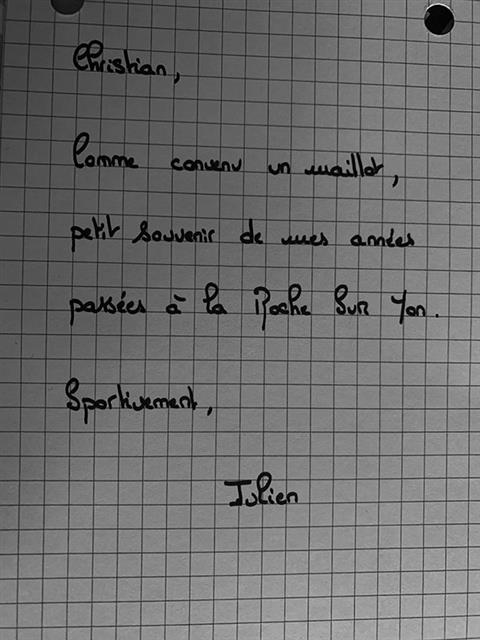 Christian,
Comme convenu un maillot,
petit souvenir de mes années
passées à la Roche Sur Yon.
Sportivement,
Julien